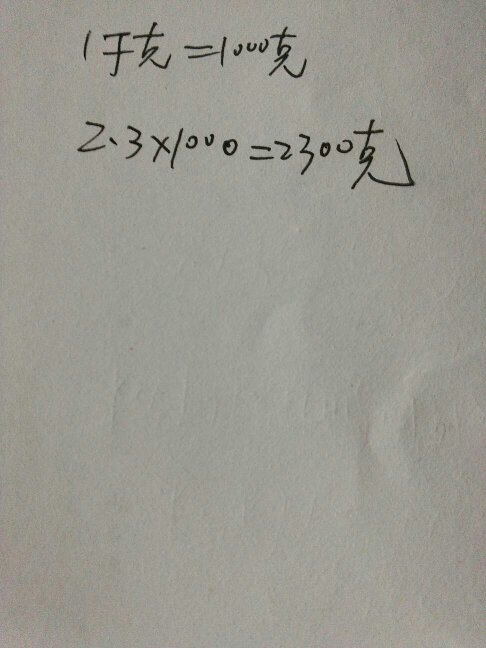 1千克=1000克
2.3×1000=2300克